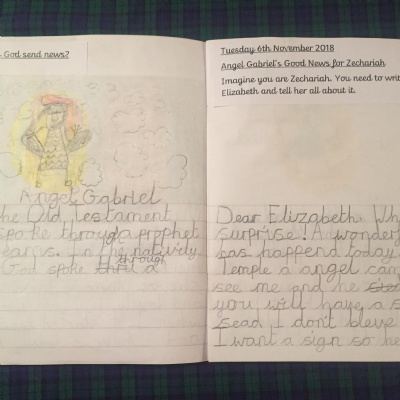 God send news?
Angel Gabriel
he Old Testament
spoke through a prophet
In the nativity
through
God spoke thru a
Tuesday 6th November 2018
Angel Gabriel's Good News for Zechariah
Imagine you are Zechariah. You need to writ
Elizabeth and tell her all about it.
Dear Elizabeth. Wh
surprise! A wonderf
has happend today.
Temple a angel cam
see me and he
you will have a s
sead I don't bleve
I want a sign so he